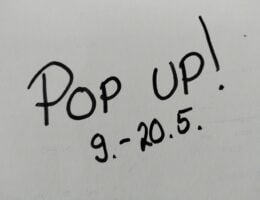 POP UP!
9.-20.5.